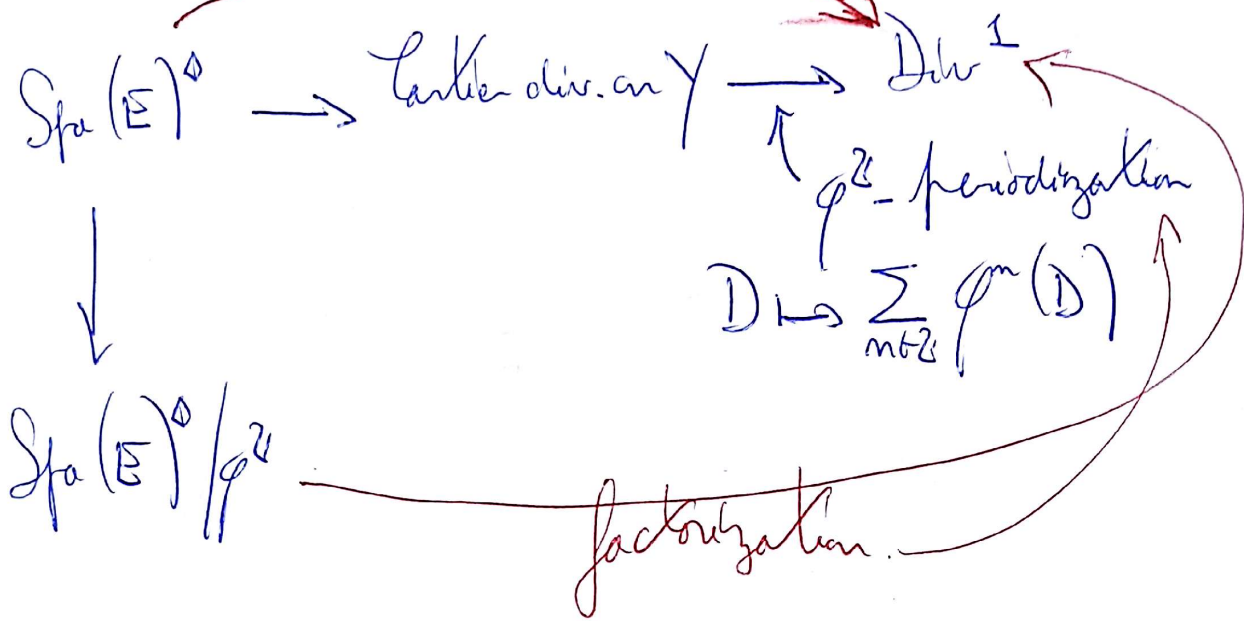 Spa(E)^◊ → Cartier div. on Y → Div^1
φ^ℤ-periodization
D ↦ ∑_{n∈ℤ} φ^n(D)
Spa(E)^◊/φ^ℤ
factorization.